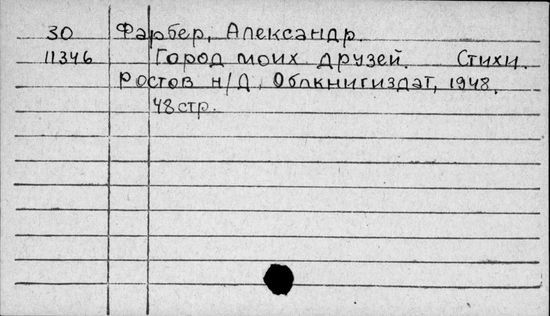 30 Фарбер, Александр.
11346 Город моих друзей. Стихи.
Ростов н/Д, Облкнигиздат, 1948.
48 стр.